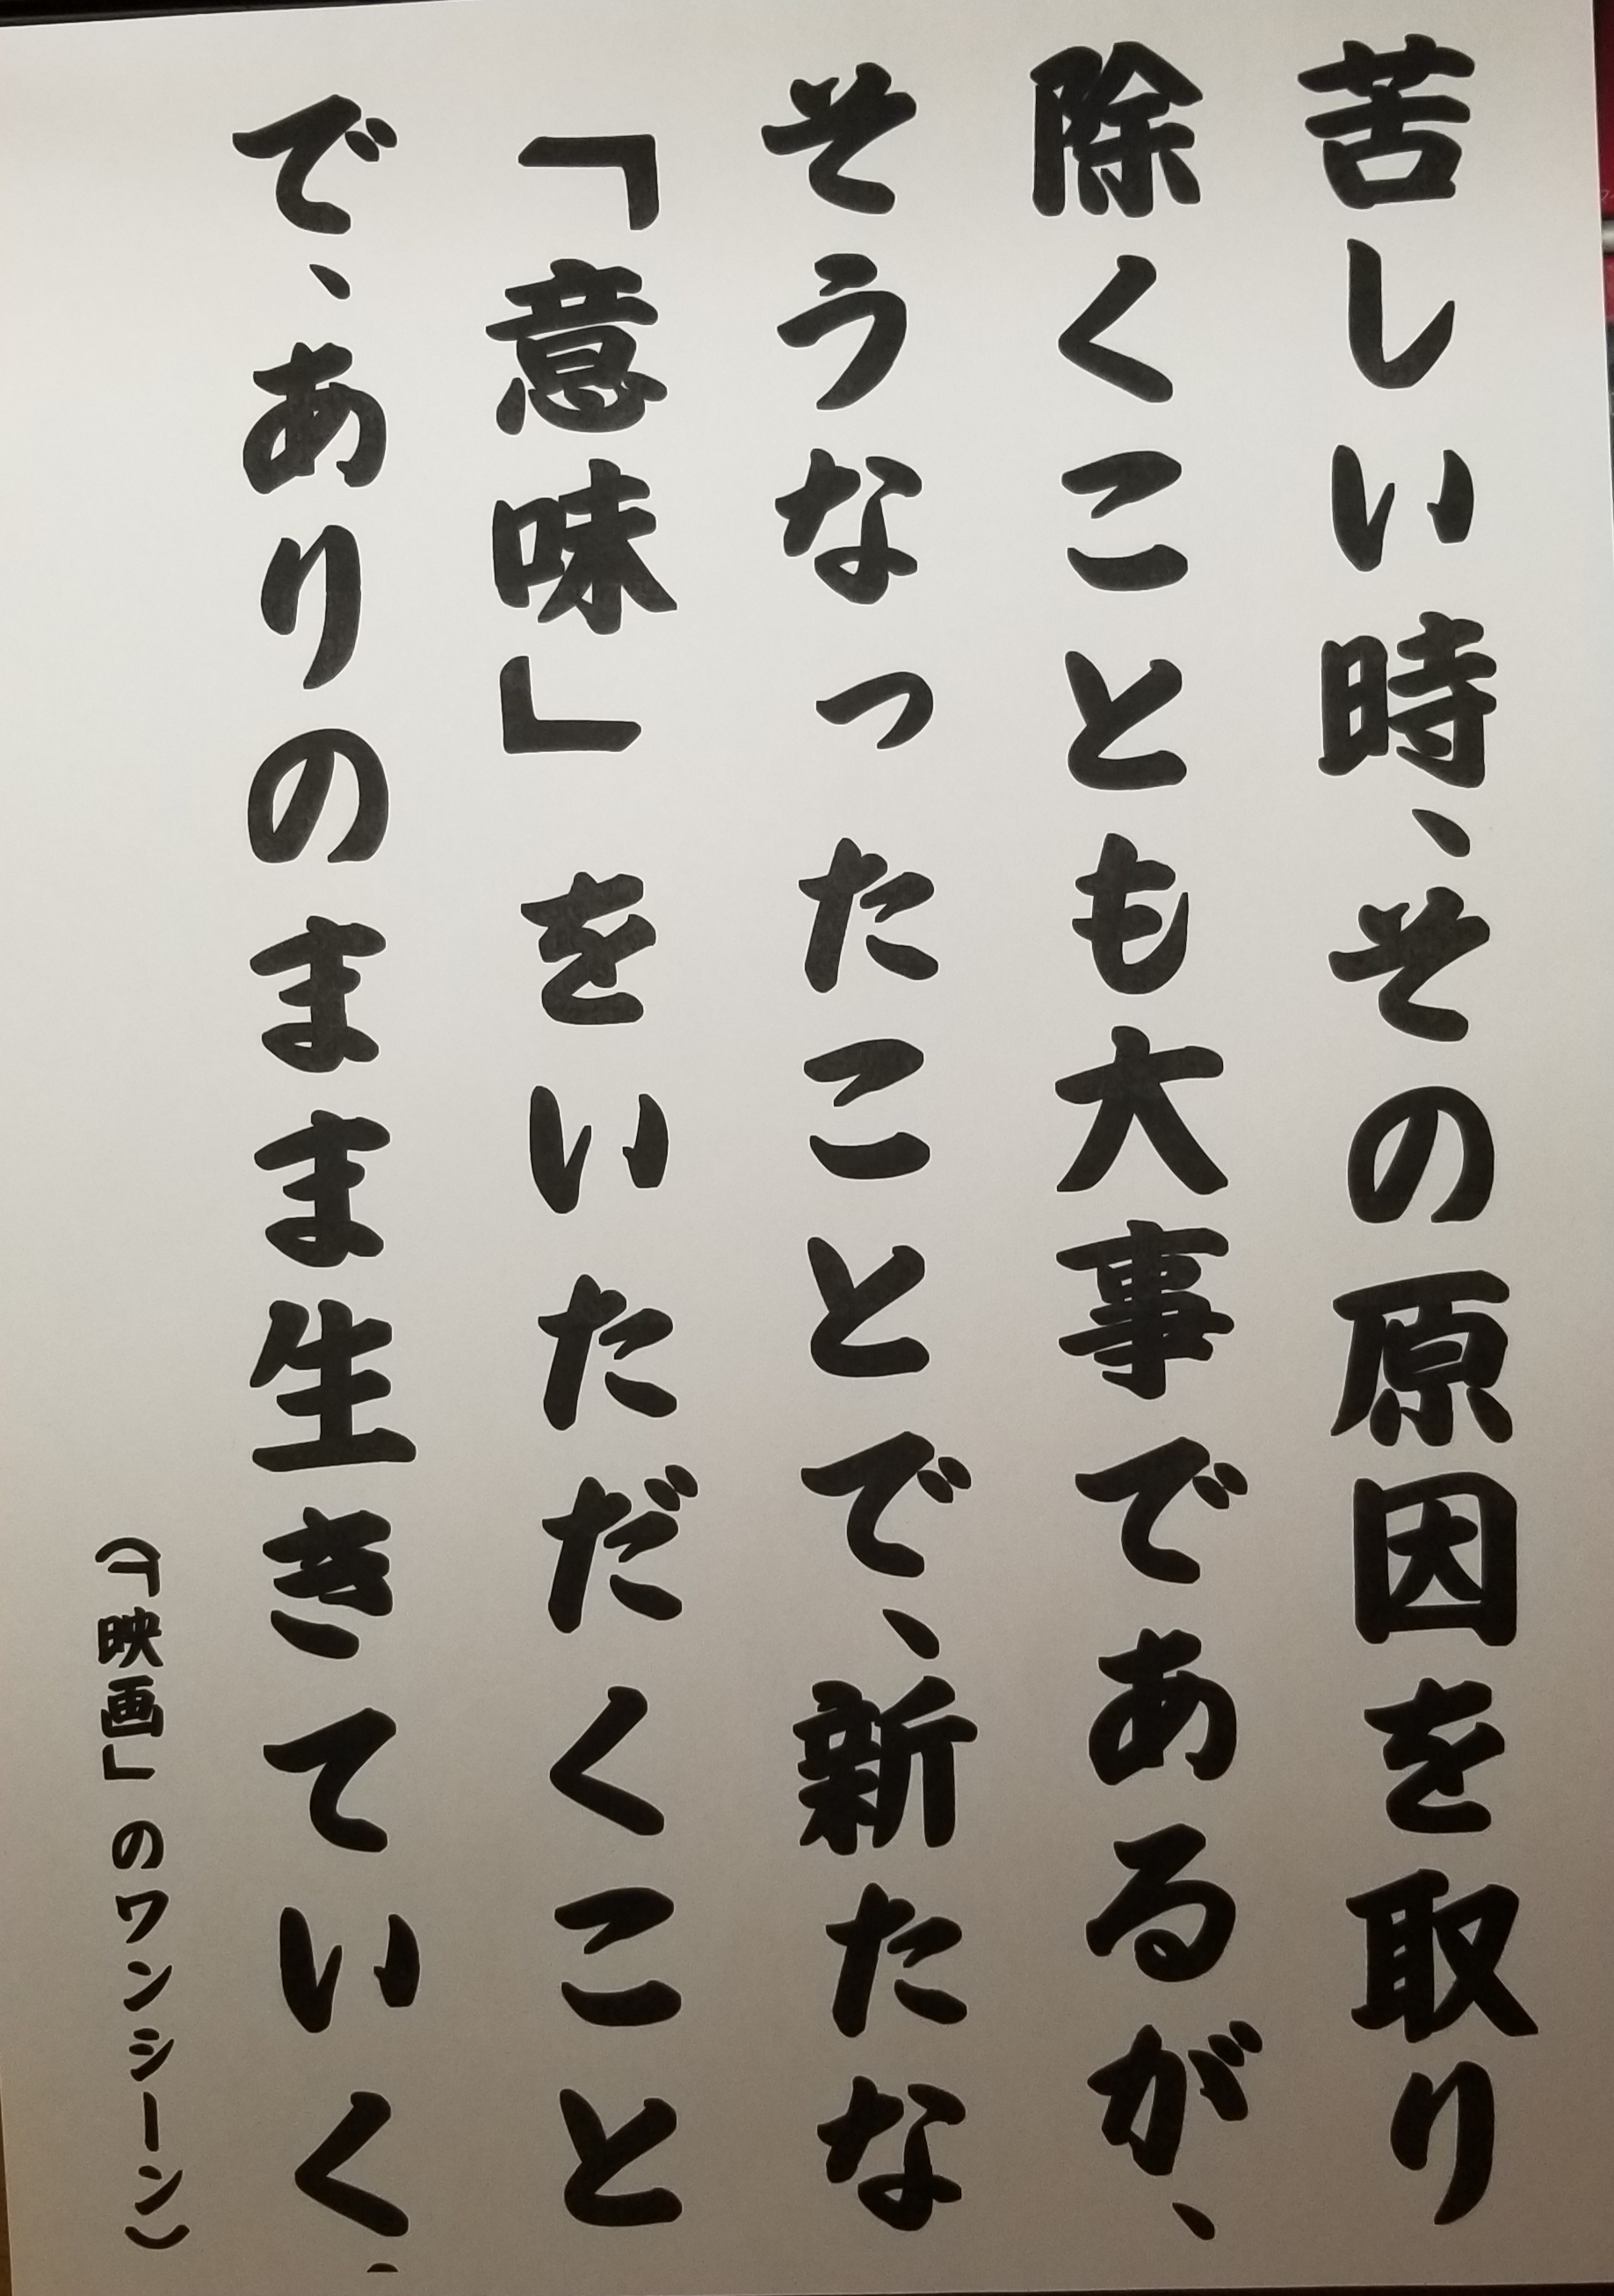 苦しい時、その原因を取り
除くことも大事であるが、
そうなったことで、新たな
「意味」をいただくこと
で、ありのまま生きていく
(「映画」のワンシーン)